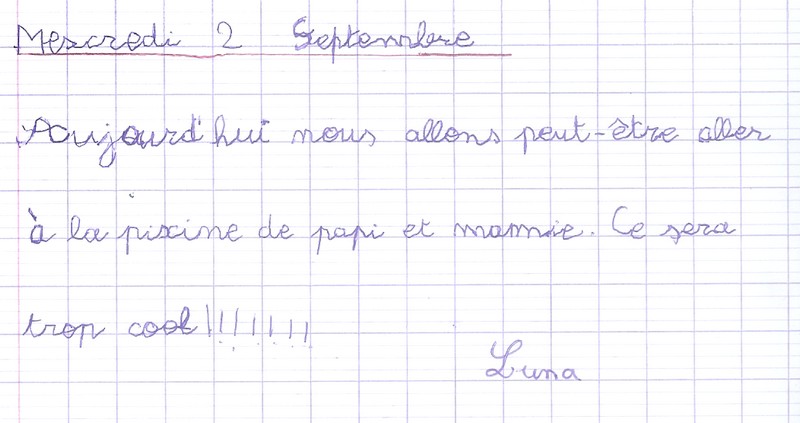 Mercredi 2 Septembre
Aujourd'hui nous allons peut-être aller
à la piscine de papi et mamie. Ce sera
trop cool!!!!!!!
Luna